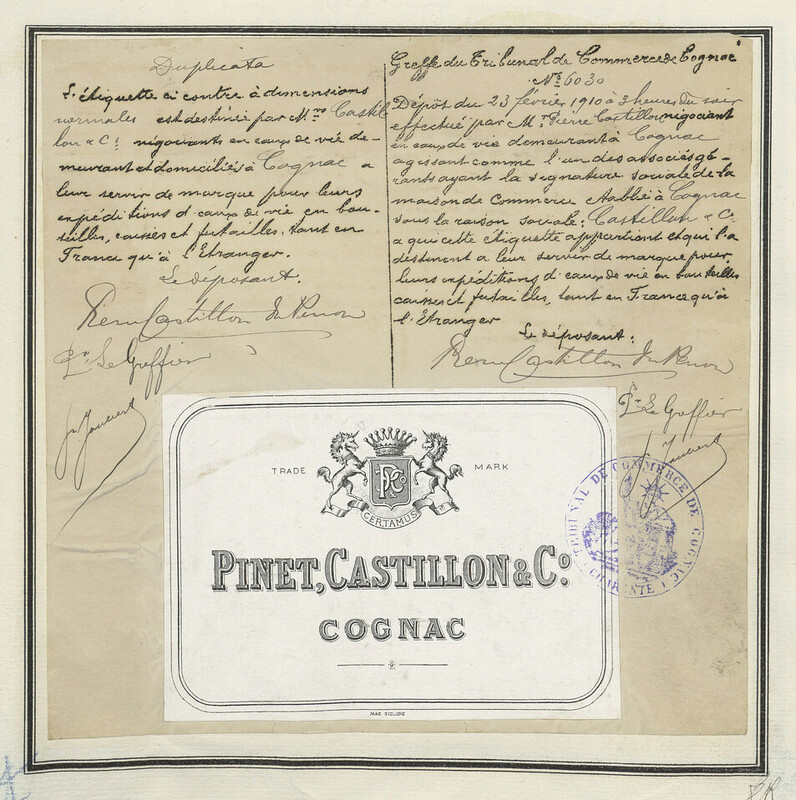 Duplicata
L'étiquette ci contre à dimensions
normales est destinée par Mrs Castil
lon & Cie négociants en eaux de vie de-
meurant et domiciliés à Cognac a
leur servir de marque pour leurs
expéditions d'eaux de vie en bou-
teilles, caisses et futailles, tant en
France qu'à l'Etranger.
Le déposant.
Pierre Castillon du Perron
Pr Le Greffier
Greffe du Tribunal de Commerce de Cognac
No 6030
Dépôt du 23 février 1910 à 3 heures du soir
effectué par Mr Pierre Castillon négociant
en eaux de vie demeurant à Cognac
agissant comme l'un des associés gé-
rants ayant la signature sociale de la
maison de Commerce établie à Cognac
sous la raison sociale: Castillon & Cie
a qui cette étiquette appartient et qui l'a
destinent a leur servir de marque pour
leurs expéditions d'eaux de vie en bouteilles
caisses et futailles, tant en France qu'à
l'Etranger
Le déposant:
Pierre Castillon du Perron
Pr Le Greffier
TRADE MARK
PC & Co
CERTAMUS
PINET, CASTILLON & Co.
COGNAC
TRIBUNAL DE COMMERCE DE COGNAC
(CHARENTE)